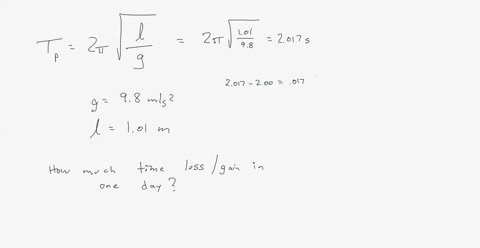 T_p = 2π √(l/g) = 2π √(1.01/9.8) = 2.017 s
2.017 - 2.00 = .017
g = 9.8 m/s²
l = 1.01 m
How much time loss/gain in
one day?